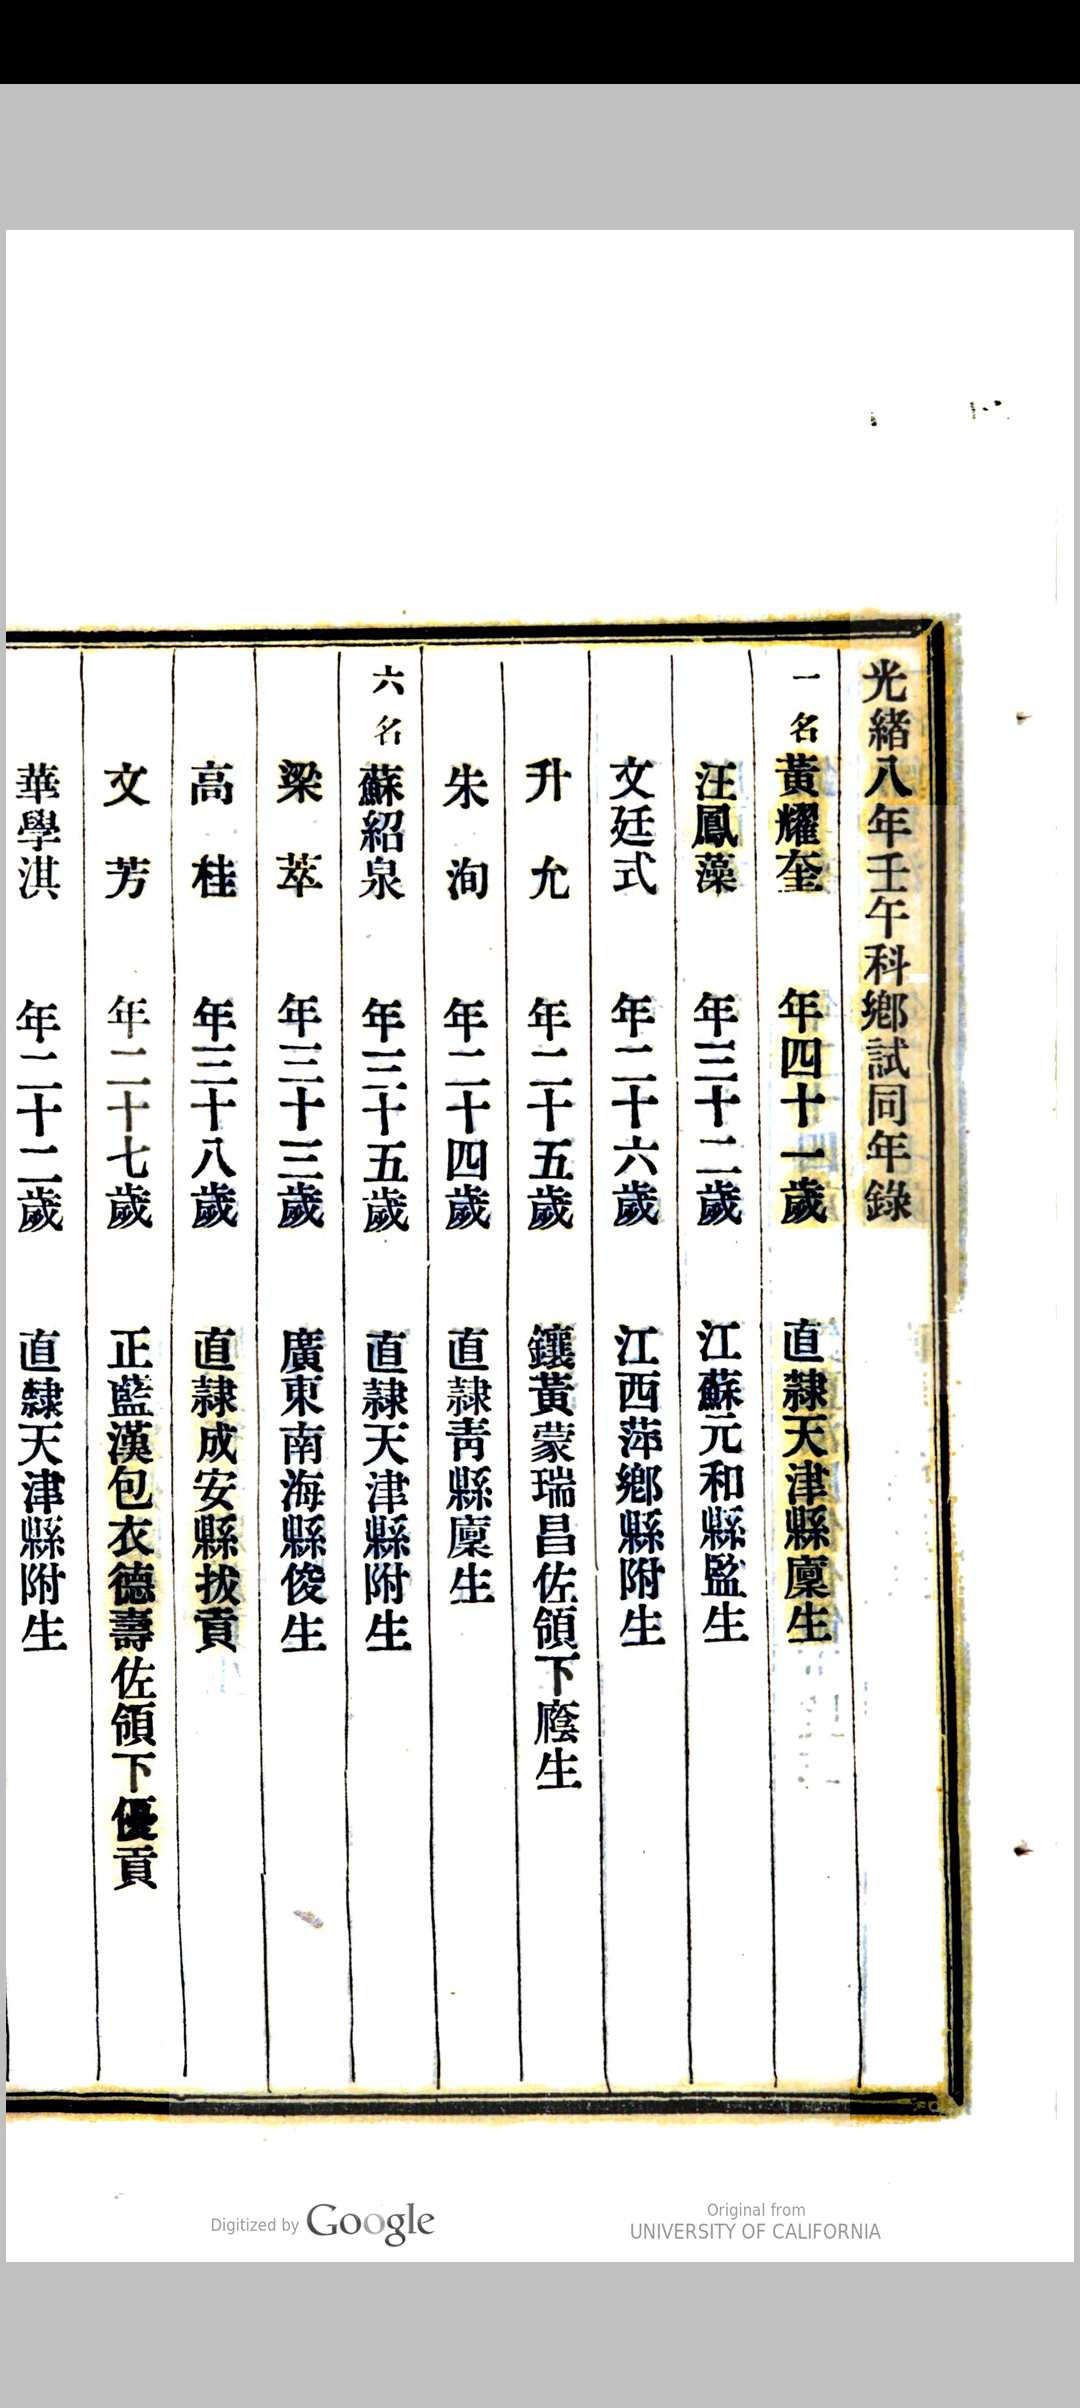 光緒八年壬午科鄉試同年錄
一名黃耀奎 年四十一歲 直隸天津縣廩生
汪鳳藻 年三十二歲 江蘇元和縣監生
文廷式 年二十六歲 江西萍鄉縣附生
升允 年二十五歲 鑲黃蒙瑞昌佐領下廕生
朱洵 年二十四歲 直隸青縣廩生
六名蘇紹泉 年三十五歲 直隸天津縣附生
梁萃 年三十三歲 廣東南海縣俊生
高桂 年三十八歲 直隸成安縣拔貢
文芳 年二十七歲 正藍漢包衣德壽佐領下優貢
華學淇 年二十二歲 直隸天津縣附生
Digitized by Google
Original from
UNIVERSITY OF CALIFORNIA